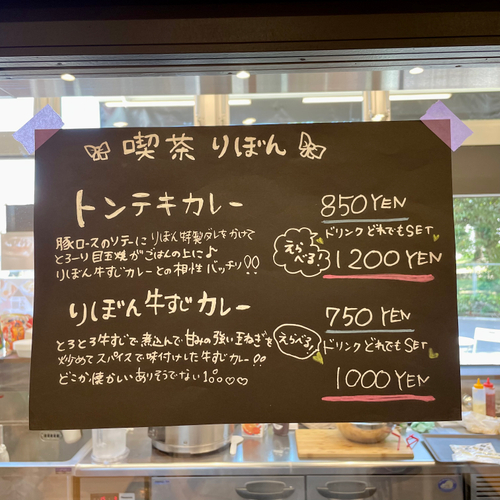 喫茶 りぼん
トンテキカレー 850YEN
豚ロースのソテーにりぼん特製ダレをかけて
とろーり目玉焼がごはんの上に♪
りぼん牛すじカレーとの相性バッチリ!!
えらべる!
ドリンクどれでもSET
1200YEN
りぼん牛すじカレー 750YEN
とろとろ牛すじで煮込んで甘みの強い玉ねぎを
炒めてスパイスで味付けした牛すじカレー!!
どこか懐かしいありそうでない1品♡♡
えらべる!
ドリンクどれでもSET
1000YEN